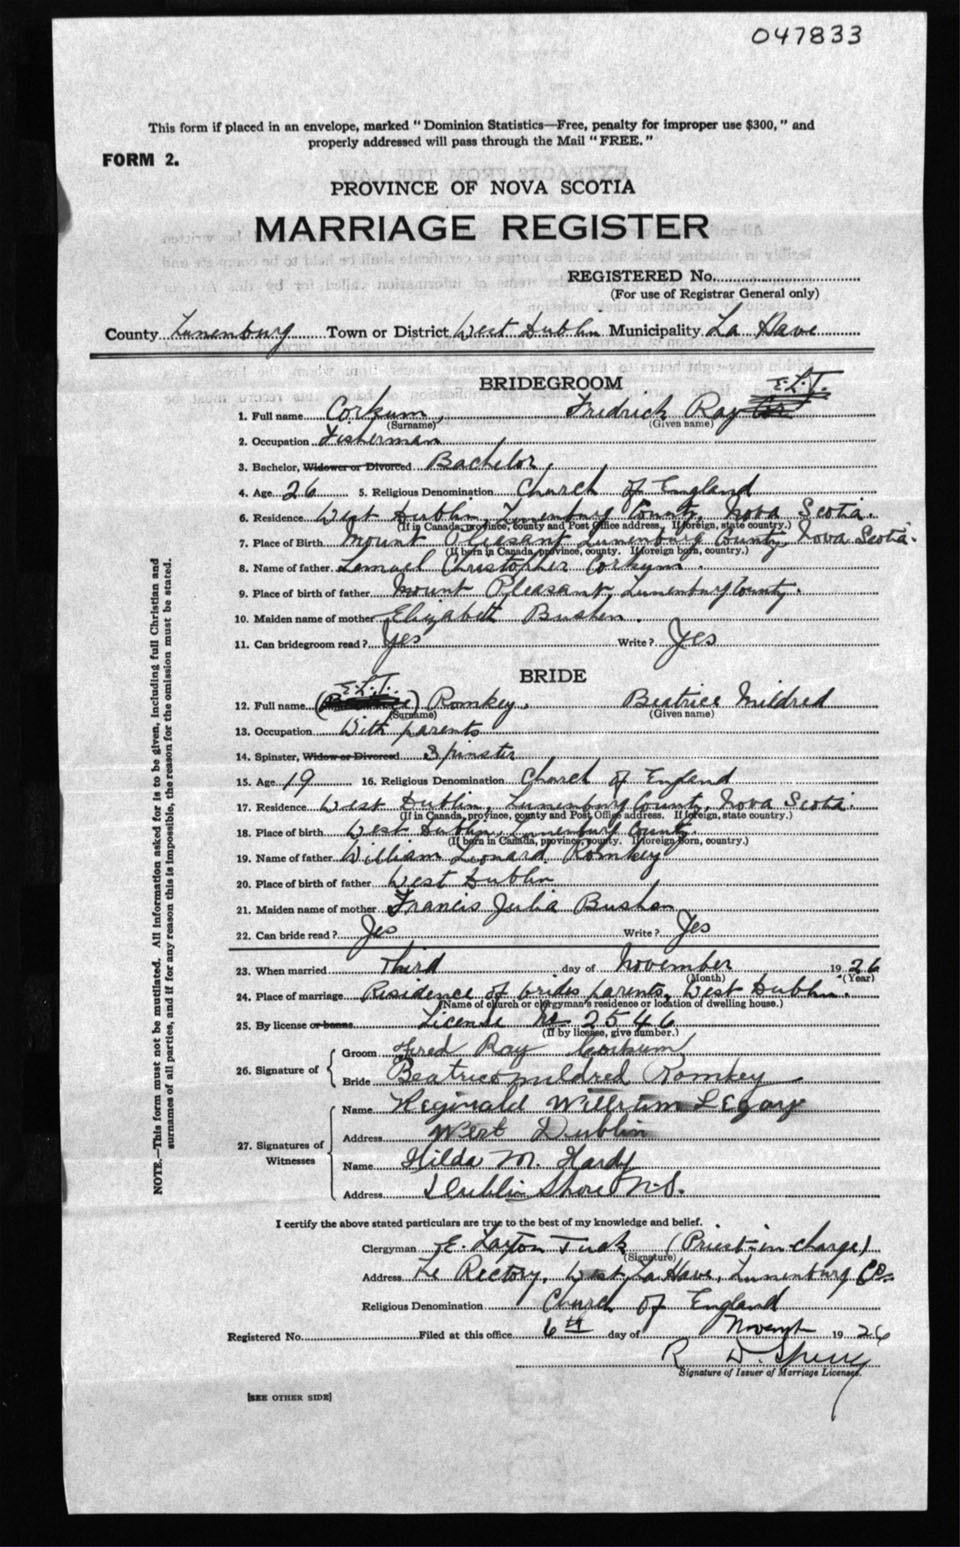 047833
This form if placed in an envelope, marked "Dominion Statistics—Free, penalty for improper use $300," and
properly addressed will pass through the Mail "FREE."
FORM 2.
PROVINCE OF NOVA SCOTIA
MARRIAGE REGISTER
REGISTERED No.
(For use of Registrar General only)
County Lunenburg Town or District West Dublin Municipality La Have
BRIDEGROOM
E.L.T.
1. Full name Corkum, Fredrick Ray
(Surname) (Given name)
2. Occupation Fisherman
3. Bachelor, Widower or Divorced Bachelor,
4. Age 26 5. Religious Denomination Church of England
6. Residence West Dublin, Lunenburg County, Nova Scotia.
(If in Canada, province, county and Post Office address. If foreign, state country.)
7. Place of Birth Mount Pleasant Lunenburg County, Nova Scotia.
(If born in Canada, province, county. If foreign born, country.)
8. Name of father Lemuel Christopher Corkum.
9. Place of birth of father Mount Pleasant, Lunenburg County.
10. Maiden name of mother Elizabeth Bushen.
11. Can bridegroom read? Yes Write? Yes
BRIDE
E.L.T.
12. Full name Romkey. Beatrice Mildred
(Surname) (Given name)
13. Occupation With parents
14. Spinster, Widow or Divorced Spinster
15. Age 19 16. Religious Denomination Church of England
17. Residence West Dublin, Lunenburg County, Nova Scotia.
(If in Canada, province, county and Post Office address. If foreign, state country.)
18. Place of birth West Dublin, Lunenburg County.
(If born in Canada, province, county. If foreign born, country.)
19. Name of father William Leonard Romkey
20. Place of birth of father West Dublin
21. Maiden name of mother Francis Julia Bushen
22. Can bride read? Yes Write? Yes
23. When married Third day of November 1926
(Month) (Year)
24. Place of marriage Residence of brides parents, West Dublin.
(Name of church or clergyman's residence or location of dwelling house.)
25. By license or banns License No 2546
(If by license, give number.)
26. Signature of
Groom Fred Ray Corkum
Bride Beatrice mildred Romkey
27. Signatures of Witnesses
Name Reginald William LEgary
Address West Dublin
Name Hilda M. Hardy
Address Dublin Shore N.S.
I certify the above stated particulars are true to the best of my knowledge and belief.
Clergyman E. Layton Tuck (Priest-in-charge)
(Signature)
Address Rectory, West La Have, Lunenburg Co.
Religious Denomination Church of England
Registered No. Filed at this office 6th day of 1926
R D. Sperry
Signature of Issuer of Marriage Licenses.
[SEE OTHER SIDE]
NOTE.—This form must not be mutilated. All information asked for is to be given, including full Christian and
surnames of all parties, and if for any reason this is impossible, the reason for the omission must be stated.